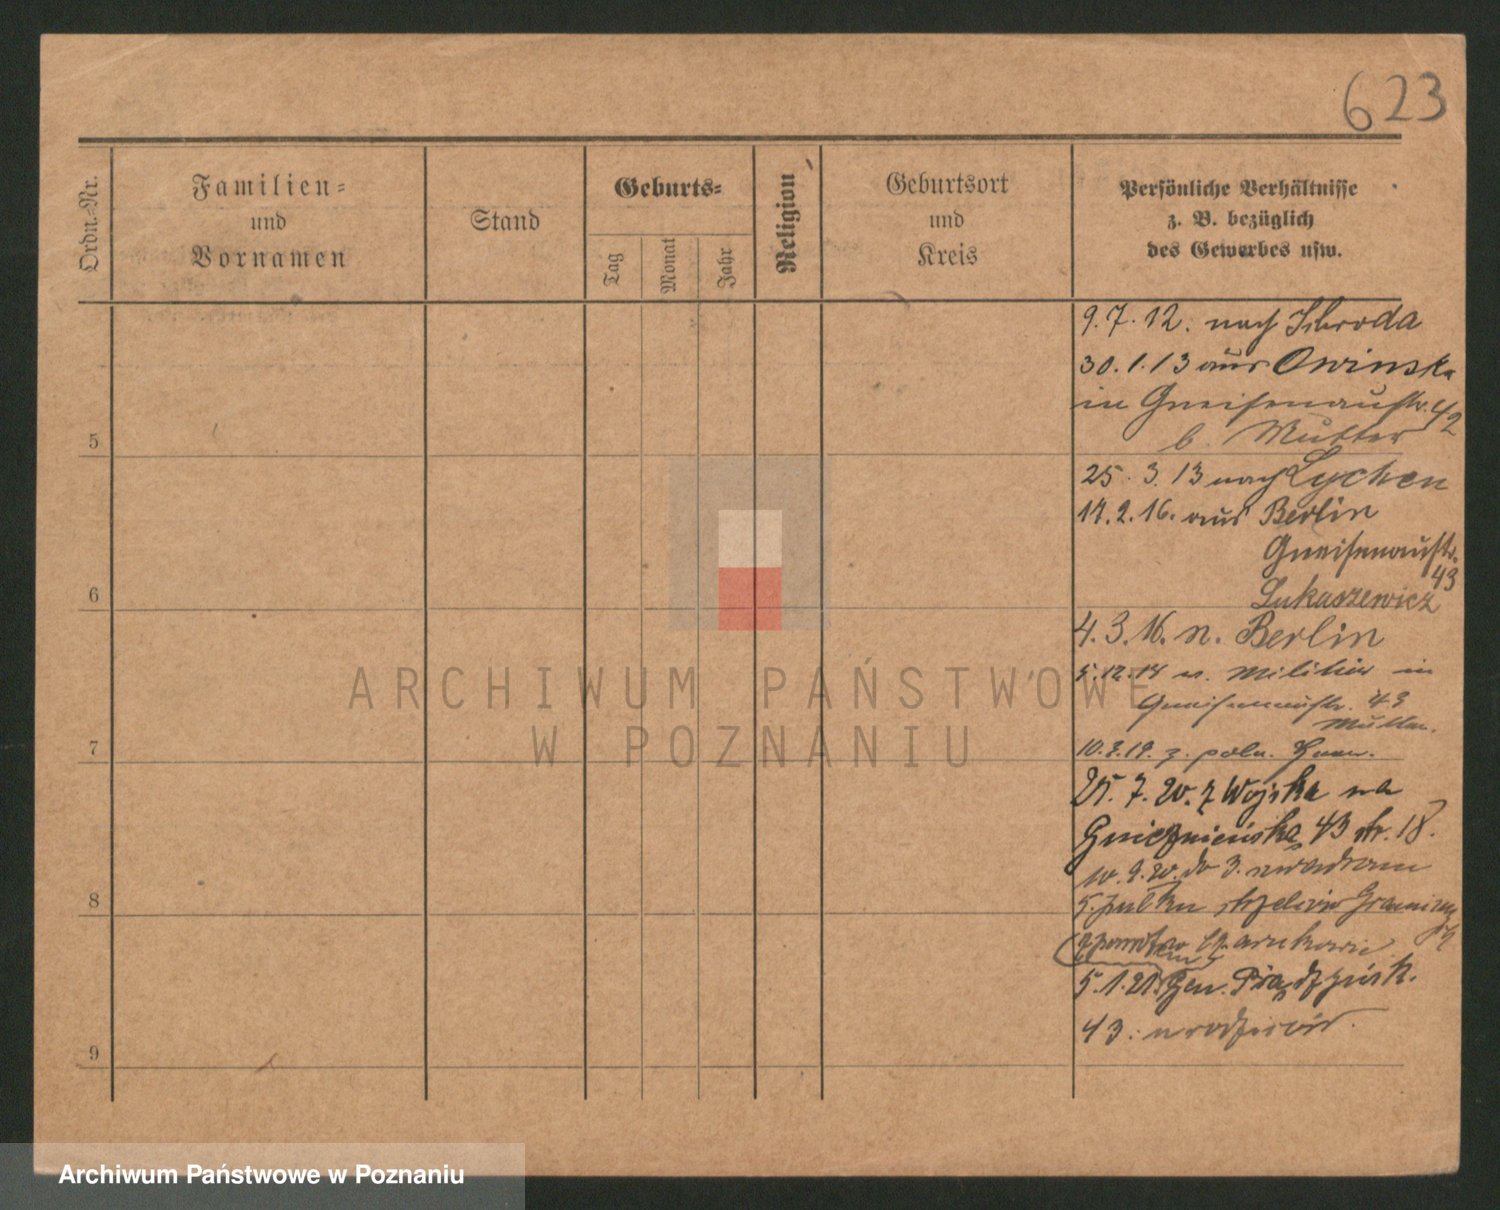 623
Ordn.-Nr.
Familien-
und
Vornamen
Stand
Geburts-
Tag
Monat
Jahr
Religion
Geburtsort
und
Kreis
Persönliche Verhältnisse
z. B. bezüglich
des Gewerbes usw.
9.7.12. nach Schroda
30.1.13 aus Owinsk
in Gneisenaustr. 42
b. Mutter
5
25.3.13 nach Lychen
17.2.16. aus Berlin
Gneisenaustr.
43
Lukaszewicz
6
4.3.16. n. Berlin
5.12.18 v. Militär in
Gneisenaustr. 43
Mutter.
7
10.2.19. z. poln.
25.7.20. z Wojska na
Gnieźnieńska 43 str. 18.
10.9.20. do 3.
8
5. pułku strzelców
5.1.21. Gen. Prądzyńsk.
43. u rodziców.
9
ARCHIWUM PAŃSTWOWE
W POZNANIU
Archiwum Państwowe w Poznaniu